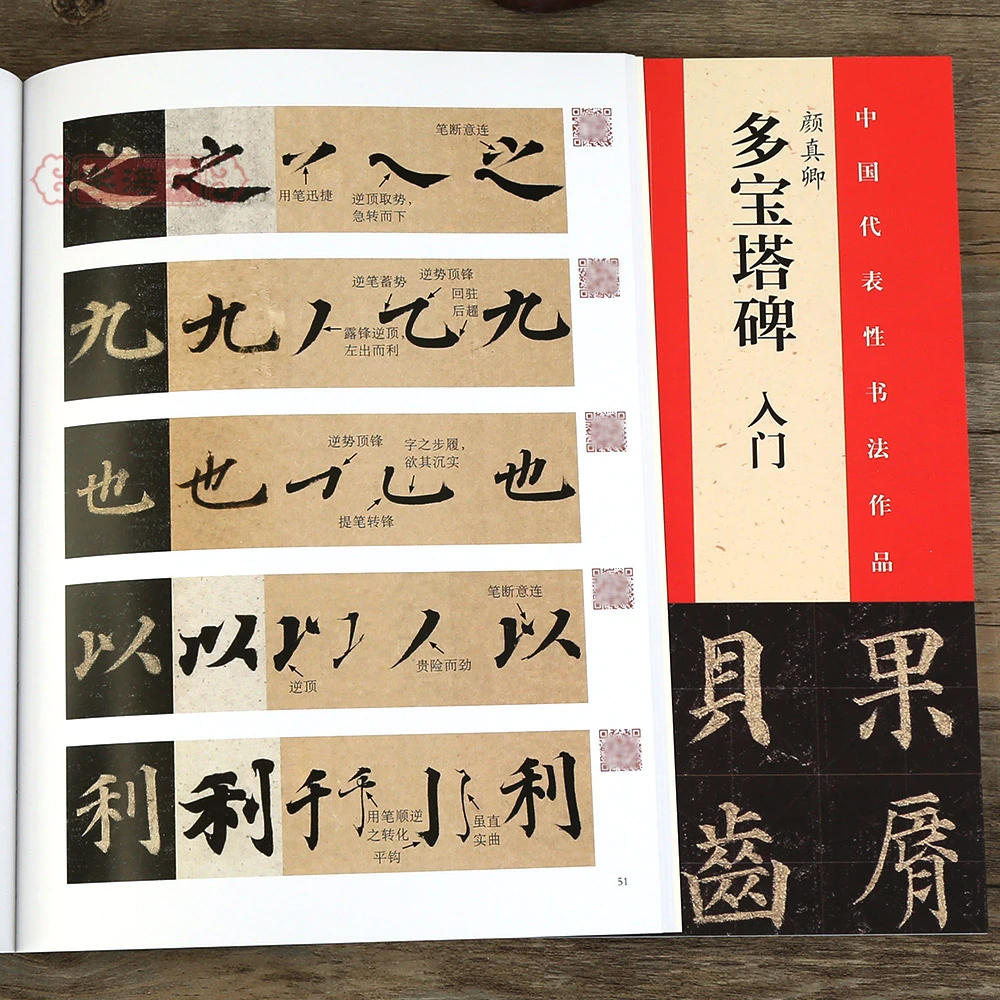 之 之 之
笔断意连
用笔迅捷
逆顶取势，
急转而下
九 九 九
逆笔蓄势
逆势顶锋
回驻
后趯
露锋逆顶，
左出而利
也 也 也
逆势顶锋
字之步履，
欲其沉实
提笔转锋
以 以 以
笔断意连
逆顶
贵险而劲
利 利 利
用笔顺逆
之转化
平钩
虽直
实曲
51
颜真卿
多宝塔碑
入门
中国代表性书法作品
貝 果
齒